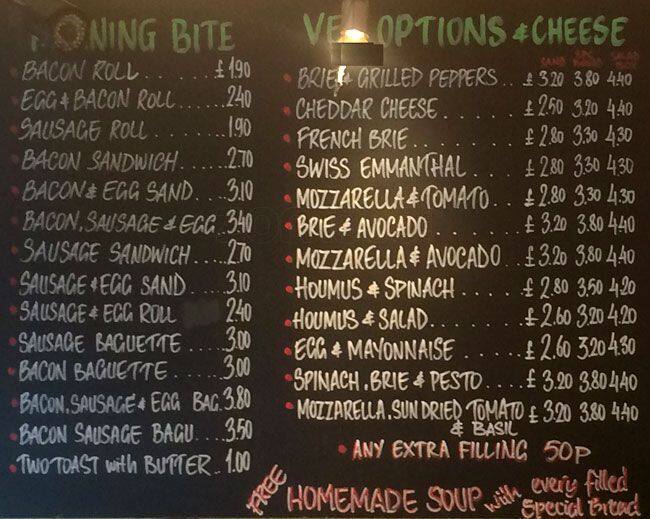 MORNING BITE
BACON ROLL ...... £ 1.90
EGG & BACON ROLL .... 240
SAUSAGE ROLL .... 1.90
BACON SANDWICH .... 2.70
BACON & EGG SAND. 3.10
BACON.SAUSAGE & EGG. 340
SAUSAGE SANDWICH .... 270
SAUSAGE & EGG SAND . 3.10
SAUSAGE & EGG ROLL 240
SAUSAGE BAGUETTE .... 3.00
BACON BAGUETTE .... 3.00
BACON.SAUSAGE & EGG BAG. 3.80
BACON SAUSAGE BAGU.... 3.50
TWO TOAST with BUTTER.. 1.00
OPTIONS & CHEESE
SAND
BRIE & GRILLED PEPPERS .. £ 3.20 3.80 4.40
CHEDDAR CHEESE ...... £ 2.50 3.20 4.40
FRENCH BRIE ........ £ 2.80 3.30 4.30
SWISS EMMANTHAL .... £ 2.80 3.30 4.30
MOZZARELLA & TOMATO .. £ 2.80 3.30 4.30
BRIE & AVOCADO ...... £ 3.20 3.80 440
MOZZARELLA & AVOCADO .. £ 3.20 3.80 4.40
HOUMUS & SPINACH ..... £ 2.80 3.50 4.20
HOUMUS & SALAD....... £ 2.60 3.20 4.20
EGG & MAYONNAISE .... £ 2.60 3.20 4.30
SPINACH.BRIE & PESTO .. £ 3.20 3.80 440
MOZZARELLA.SUN DRIED TOMATO £ 3.20 3.80 4.40
& BASIL
ANY EXTRA FILLING 50P
FREE HOMEMADE SOUP with every filled
Special Bread